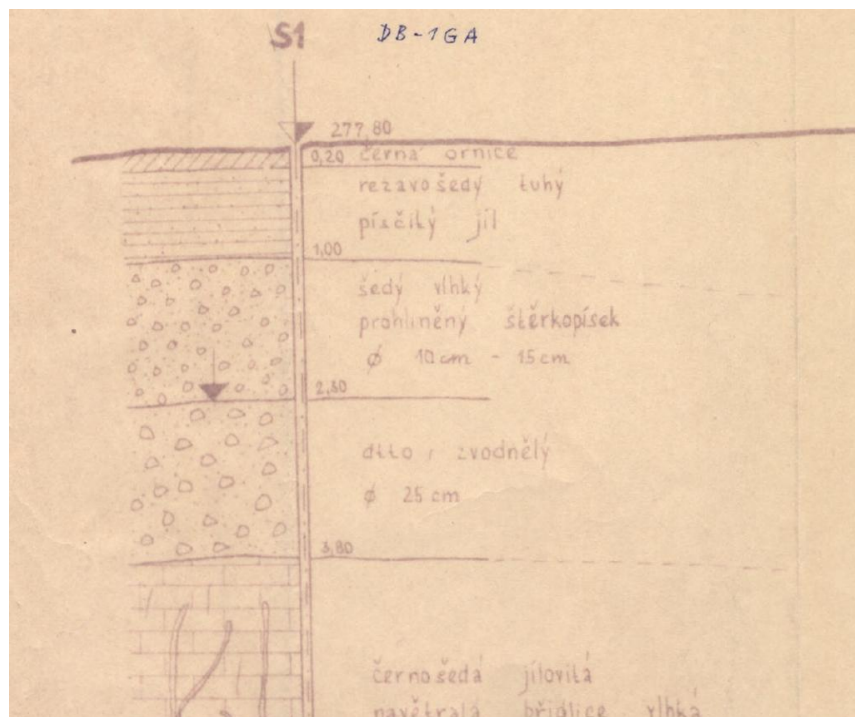 S1
DB-1GA
277,80
0,20 černá ornice
rezavošedý tuhý
písčitý jíl
1,00
šedý vlhký
prohliněný štěrkopísek
ϕ 10 cm - 15 cm
ditto, zvodnělý
ϕ 25 cm
3,80
černošedá jílovitá
navětralá břidlice vlhká